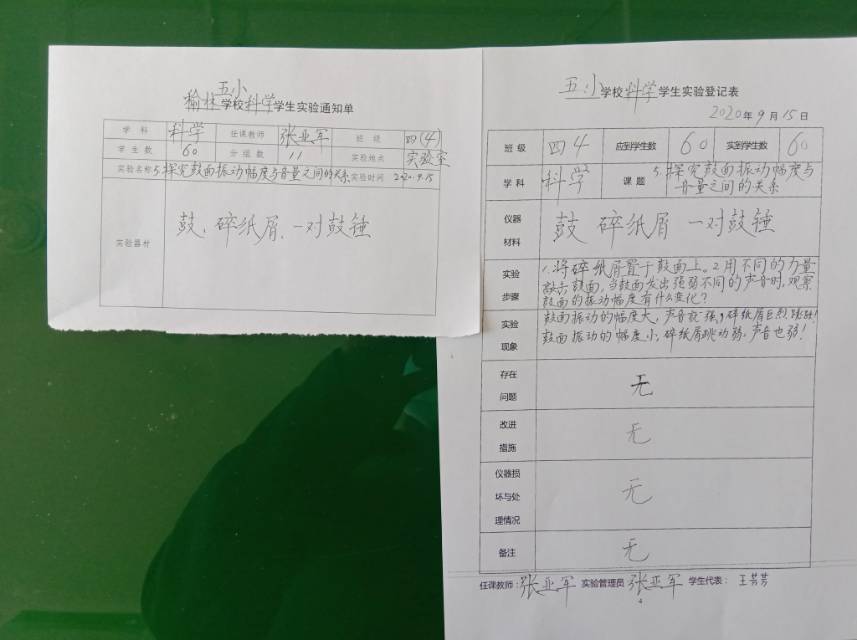 榆林五小学校科学学生实验通知单
学科 科学 任课教师 张亚军 班级 四(4)
学生数 60 分组数 11 实验地点 实验室
实验名称 5.探究鼓面振动幅度与音量之间的关系 实验时间 2020.9.15
实验器材 鼓、碎纸屑、一对鼓锤
五小学校科学学生实验登记表
2020年9月15日
班级 四4 应到学生数 60 实到学生数 60
学科 科学 课题 5.探究鼓面振动幅度与
音量之间的关系
仪器
材料
鼓 碎纸屑 一对鼓锤
实验
步骤
1.将碎纸屑置于鼓面上。2用不同的力量
敲击鼓面,当鼓面发出强弱不同的声音时,观察
鼓面的振动幅度有什么变化?
实验
现象
鼓面振动的幅度大,声音就强,碎纸屑跳动!
鼓面振动的幅度小,碎纸屑跳动弱,声音也弱!
存在
问题
无
改进
措施
无
仪器损
坏与处
理情况
无
备注 无
任课教师:张亚军 实验管理员 张亚军 学生代表: 王芸芸